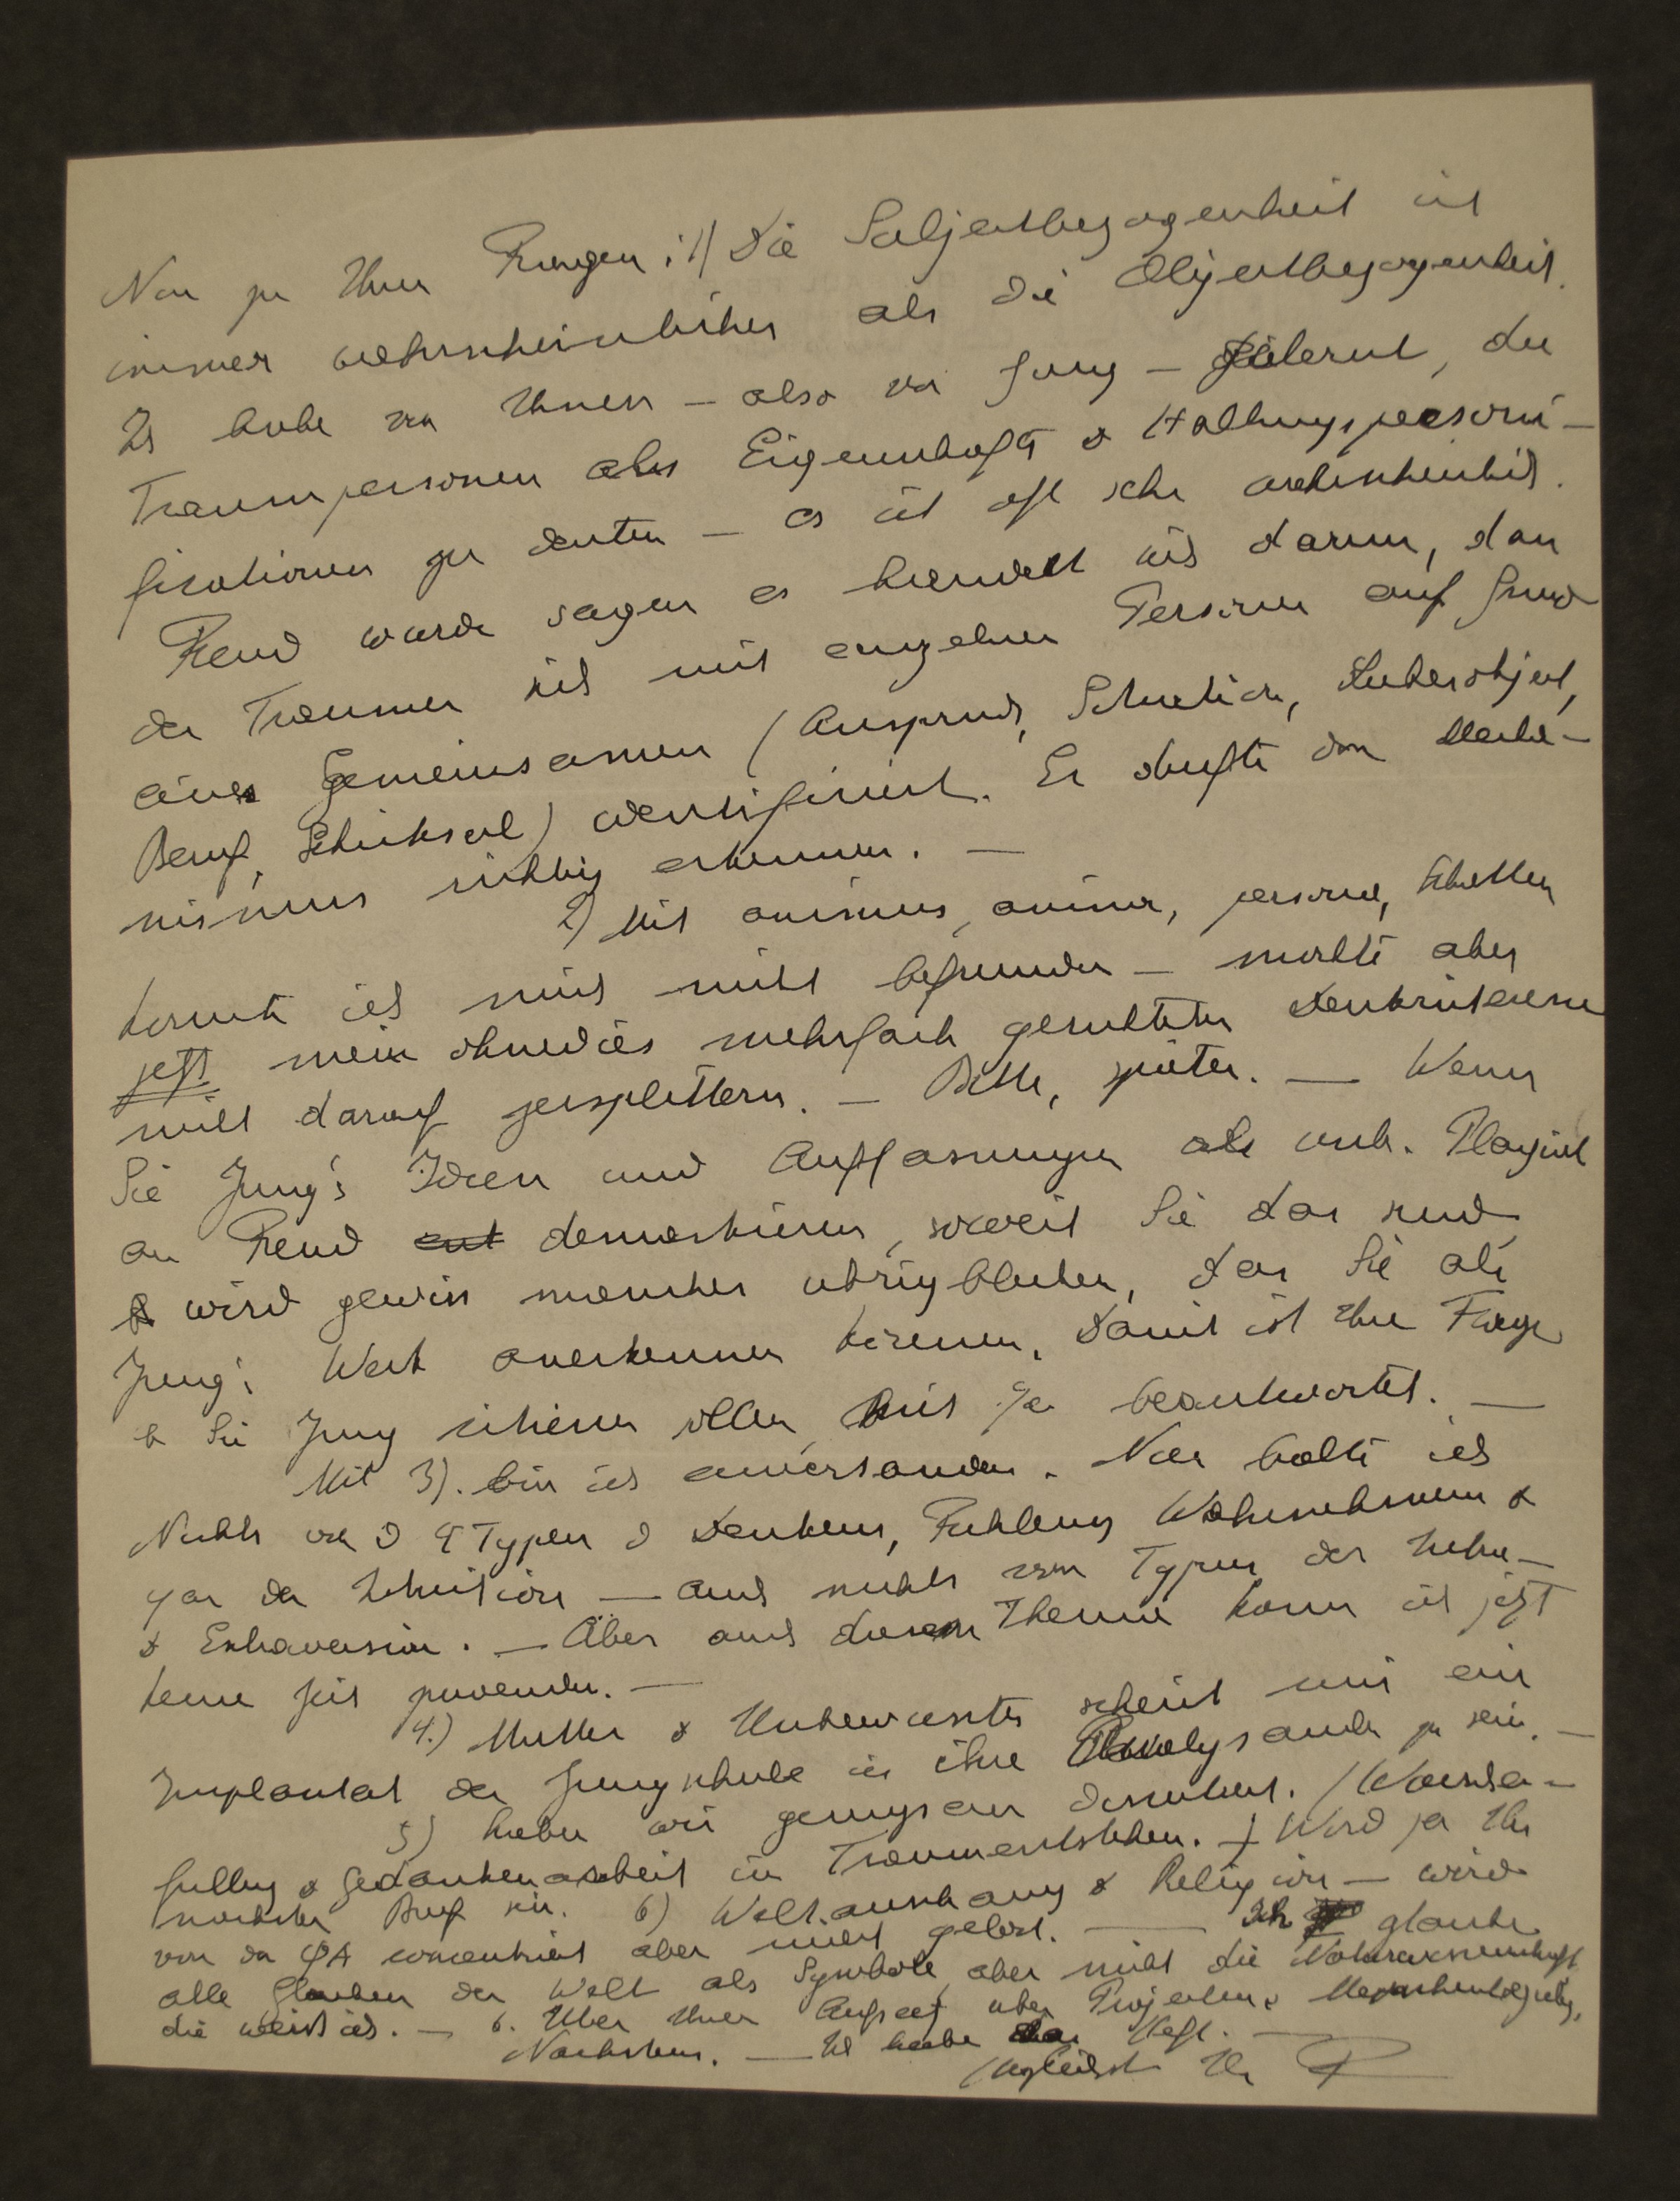 Nun zu Ihren Fragen: 1) Die Subjectbezogenheit ist
immer wahrscheinlicher als die Objectbezogenheit.
Ich habe von Ihnen – also von Jung – gelernt, die
Traumpersonen als Eigenschafts & Haltungspersoni-
fikationen zu deuten – es ist oft sehr wahrscheinlich.
Freud würde sagen es handelt sich darum, dass
der Träumer sich mit einzelnen Personen auf Grund
eines Gemeinsamen (Anspruch, Liebesobject,
Beruf, Schicksal) identificiert. Er dürfte den Mecha-
nismus richtig erkennen. —
2) Mit animus, anima, persona, Schatten
konnte ich mich nicht befreunden – möchte aber
jetzt mein ohnedies mehrfach Denkinteresse
nicht darauf zersplittern. – Bitte, später. — Wenn
Sie Jung's Ideen und Auffassungen als unb. Plagiat
an Freud demaskieren, soweit Sie das sind
& wird gewiss manches übrigbleiben, das Sie als
Jung's Werk anerkennen können. Damit ist Ihre Frage
ob Sie Jung citieren sollen, mit Ja beantwortet. —
Mit 3). bin ich einverstanden. Nur halte ich
Nichts von d 4 Typen d Denkens, Fühlens, Wahrnehmens &
gar der Intuition — auch nichts von Typen der Intro-
& Extraversion. — Aber auch diesem Thema kann ich jetzt
keine Zeit zuwenden. —
4.) Mutter & Unbewusstes scheint mir ein
Implantat der Jungschule in ihre zu sein. –
5) haben wir genugsam discutiert. (Wunscher-
füllung & Gedankenarbeit im Traumentstehen. –) Wird ja Ihr
nächster Brief sein. 6) Weltanschauung & Religion — wird
von der ΨA concentriert aber nicht gelöst. — Ich glaube
alle Glauben der Welt als Symbole, aber nicht die Naturwissenschaft,
die weiss ich. — 6. Über Ihren Aufsatz über Projection &
Nächstens. — Ich habe das Heft. —
Ihr